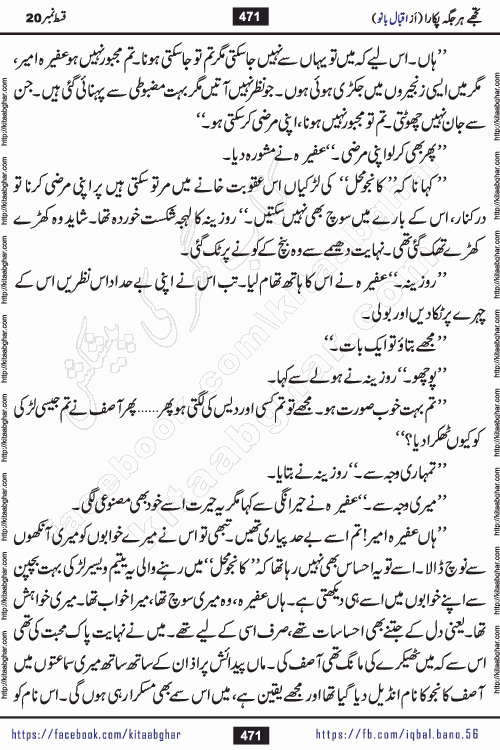 تجھے ہر جگہ پکارا (از اقبال بانو)
471
قسط نمبر 20
’’ہاں۔ اس لیے کہ میں تو یہاں سے نہیں جاسکتی مگر تم تو جاسکتی ہونا۔ تم مجبور نہیں ہو عفیرہ امیر،
مگر میں ایسی زنجیروں میں جکڑی ہوئی ہوں۔ جو نظر نہیں آتیں مگر بہت مضبوطی سے پہنائی گئی ہیں۔ جن
سے جان نہیں چھوٹتی۔ تم تو مجبور نہیں ہونا، اپنی مرضی کرسکتی ہو۔‘‘
’’پھر بھی کرلو اپنی مرضی۔‘‘ عفیرہ نے مشورہ دیا۔
’’کہا نا کہ ’’کانجو محل‘‘ کی لڑکیاں اس عقوبت خانے میں مر تو سکتی ہیں پر اپنی مرضی کرنا تو
درکنار، اس کے بارے میں سوچ بھی نہیں سکتیں۔‘‘ روزینہ کا لہجہ شکست خوردہ تھا۔ شاید وہ کھڑے
کھڑے تھک گئی تھی۔ نہایت دھیمے سے وہ بنچ کے کونے پر ٹک گئی۔
’’روزینہ۔‘‘ عفیرہ نے اس کا ہاتھ تھام لیا۔ تب اس نے اپنی بے حد اداس نظریں اس کے
چہرے پر ٹکا دیں اور بولی۔
’’مجھے بتاؤ تو ایک بات۔‘‘
’’پوچھو۔‘‘ روزینہ نے ہولے سے کہا۔
’’تم بہت خوب صورت ہو۔ مجھے تو تم کسی اور دیس کی لگتی ہو پھر...... پھر آصف نے تم جیسی لڑکی
کو کیوں ٹھکرا دیا؟‘‘
’’تمہاری وجہ سے۔‘‘ روزینہ نے بتایا۔
’’میری وجہ سے۔‘‘ عفیرہ نے حیرانگی سے کہا مگر یہ حیرت اسے خود بھی مصنوعی لگی۔
’’ہاں عفیرہ امیر! تم اسے بے حد پیاری تھیں۔ تبھی تو اس نے میرے خوابوں کو میری آنکھوں
سے نوچ ڈالا۔ اسے تو یہ احساس بھی نہیں رہا تھا کہ ’’کانجو محل‘‘ میں رہنے والی یہ یتیم ویسیر لڑکی بہت بچپن
سے اپنے خوابوں میں اسے ہی دیکھتی ہے۔ ہاں عفیرہ، وہ میری سوچ تھا، میرا خواب تھا۔ میری خواہش
تھا۔ یعنی دل کے جتنے بھی احساسات تھے، صرف اسی کے لیے تھے۔ میں نے نہایت پاک محبت کی تھی
اس سے کہ میں ٹھیکرے کی مانگ تھی آصف کی۔ ماں پیدائش پر اذان کے ساتھ ساتھ میری سماعتوں میں
آصف کانجو کا نام انڈیل دیا گیا تھا اور مجھے یقین ہے، میں اس سے بھی مسکرا رہی ہوں گی۔ اس نام کو
https://facebook.com/kitaabghar
471
https://fb.com/iqbal.bano.56
http://kitaabghar.com
facebook.com/kitaabghar
kitaabghar.com
کتاب گھر کی پیشکش